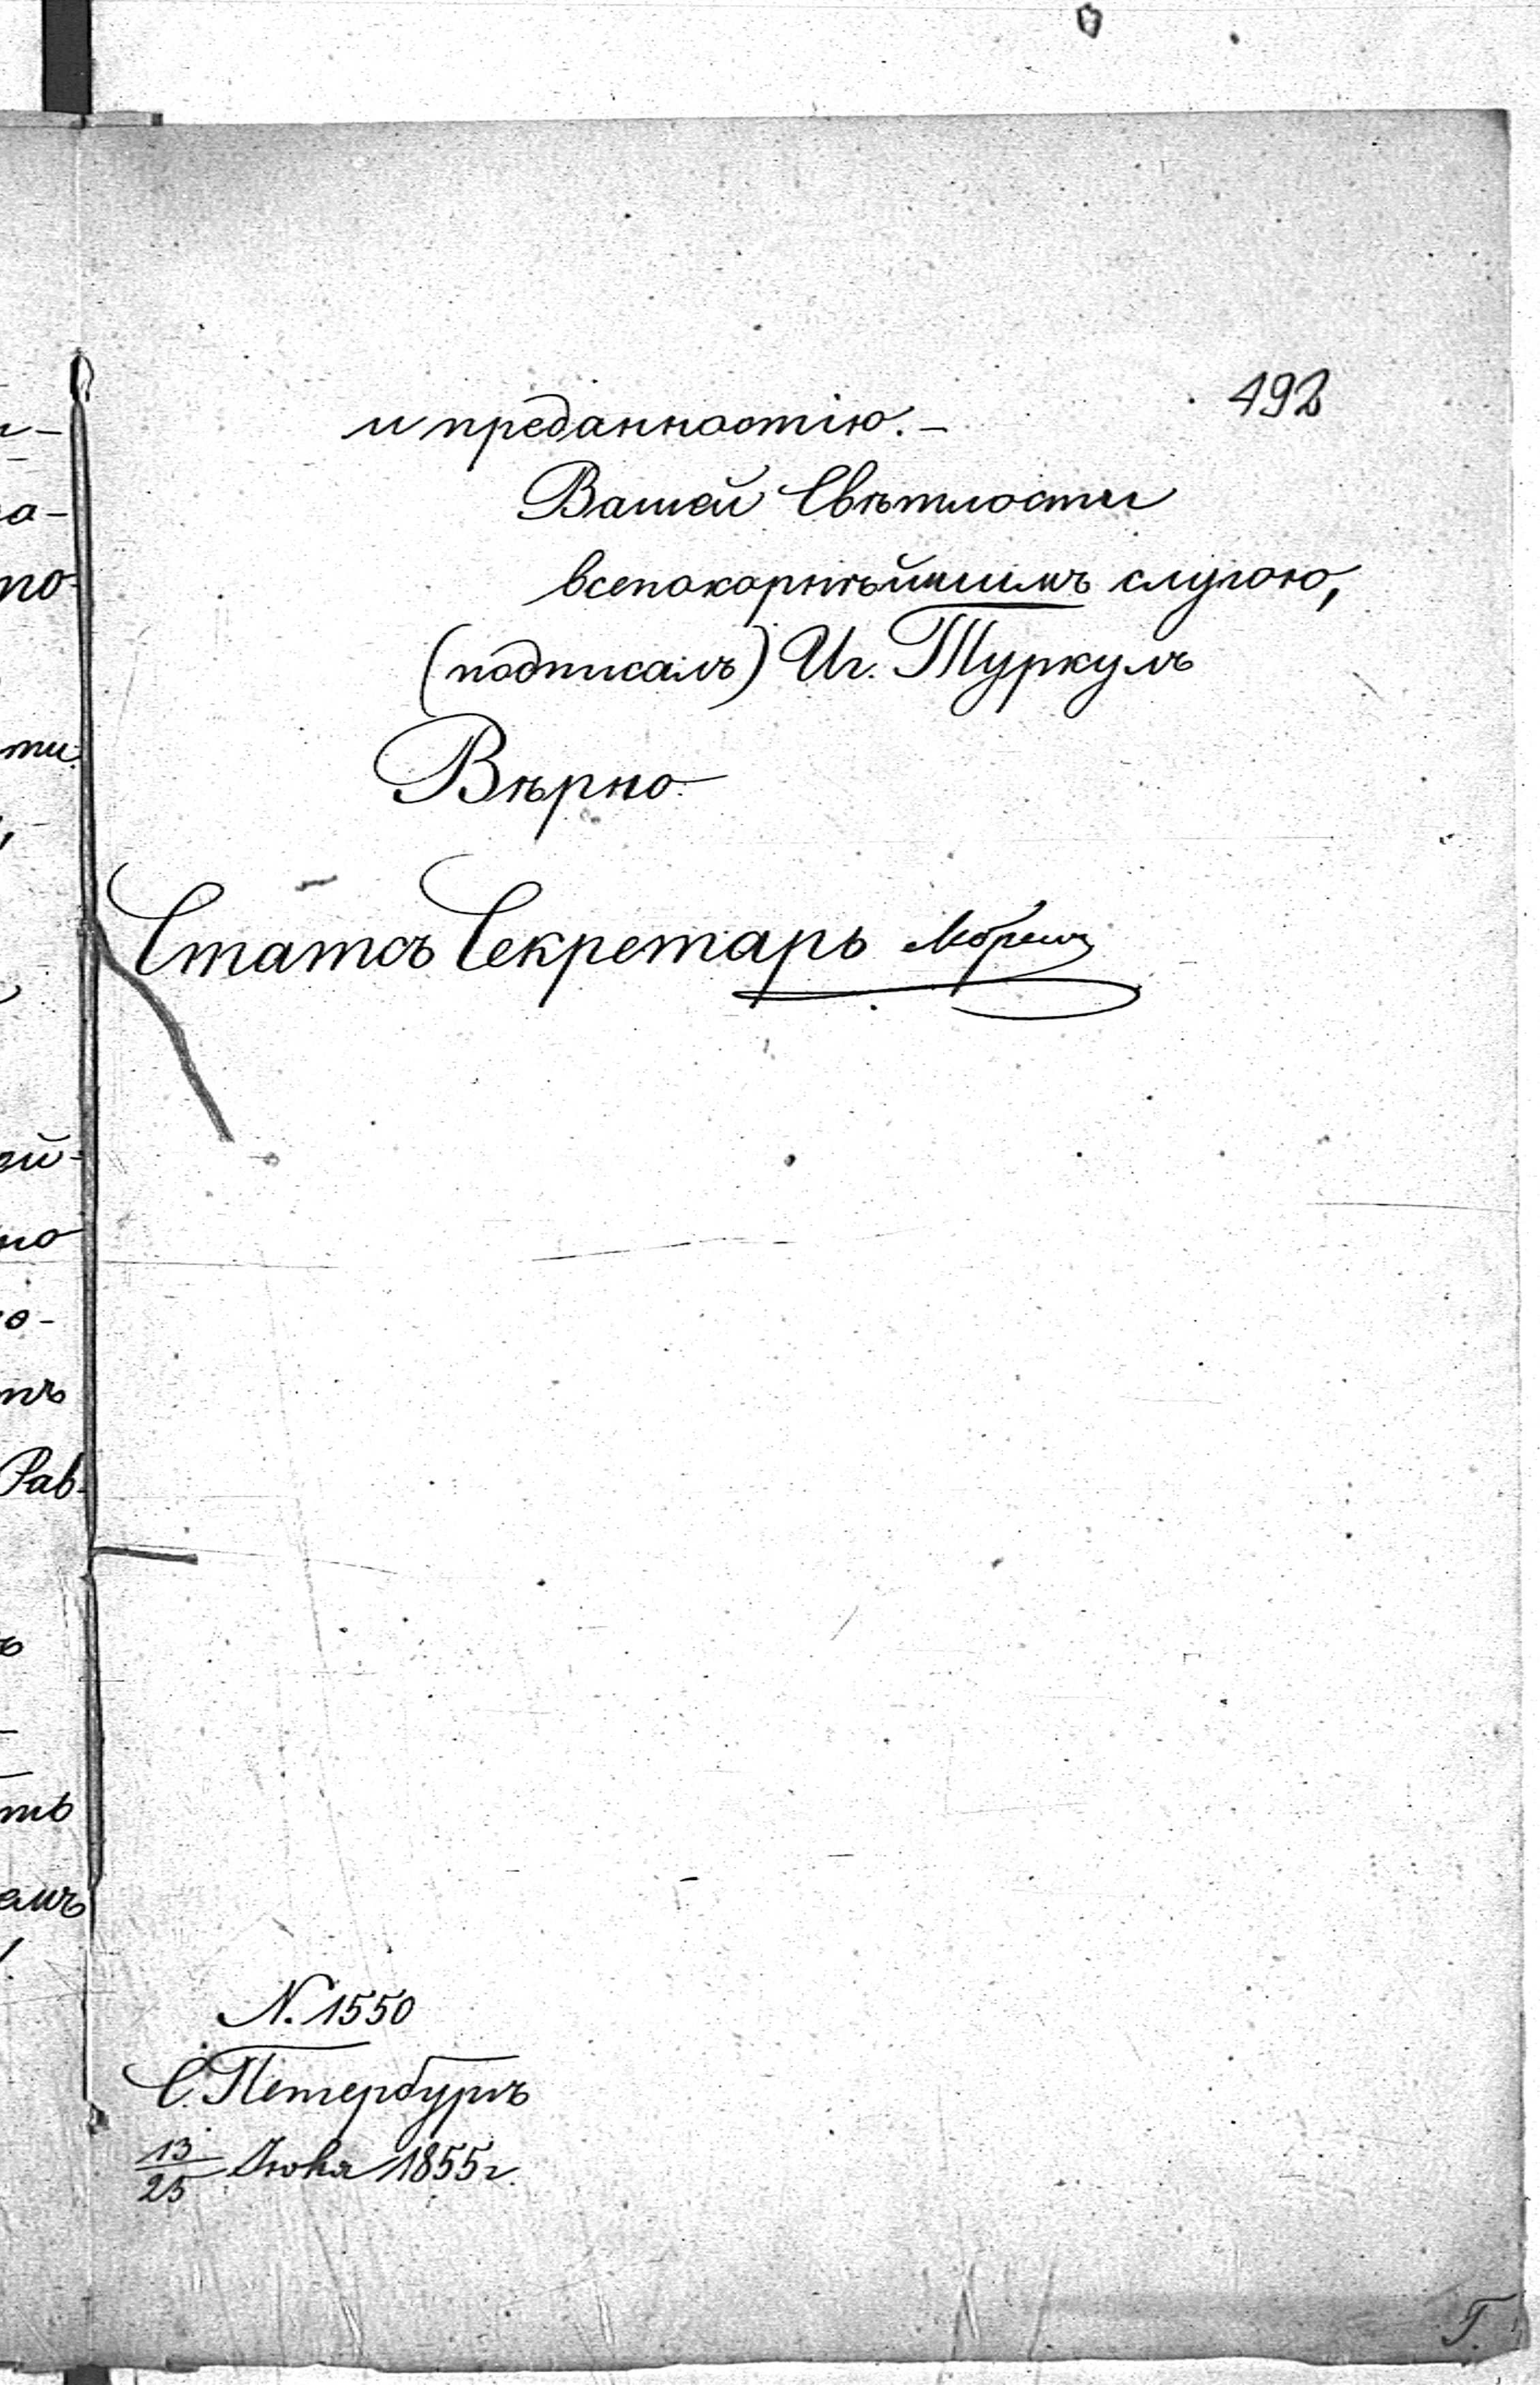 492
и преданностію. –
Вашей Свѣтлости
всепокорнѣйшимъ слугою,
(подписалъ) Иг. Туркулъ
Вѣрно
Статсъ Секретарь
N. 1550
С. Петербургъ
13/25 Іюня 1855 г.